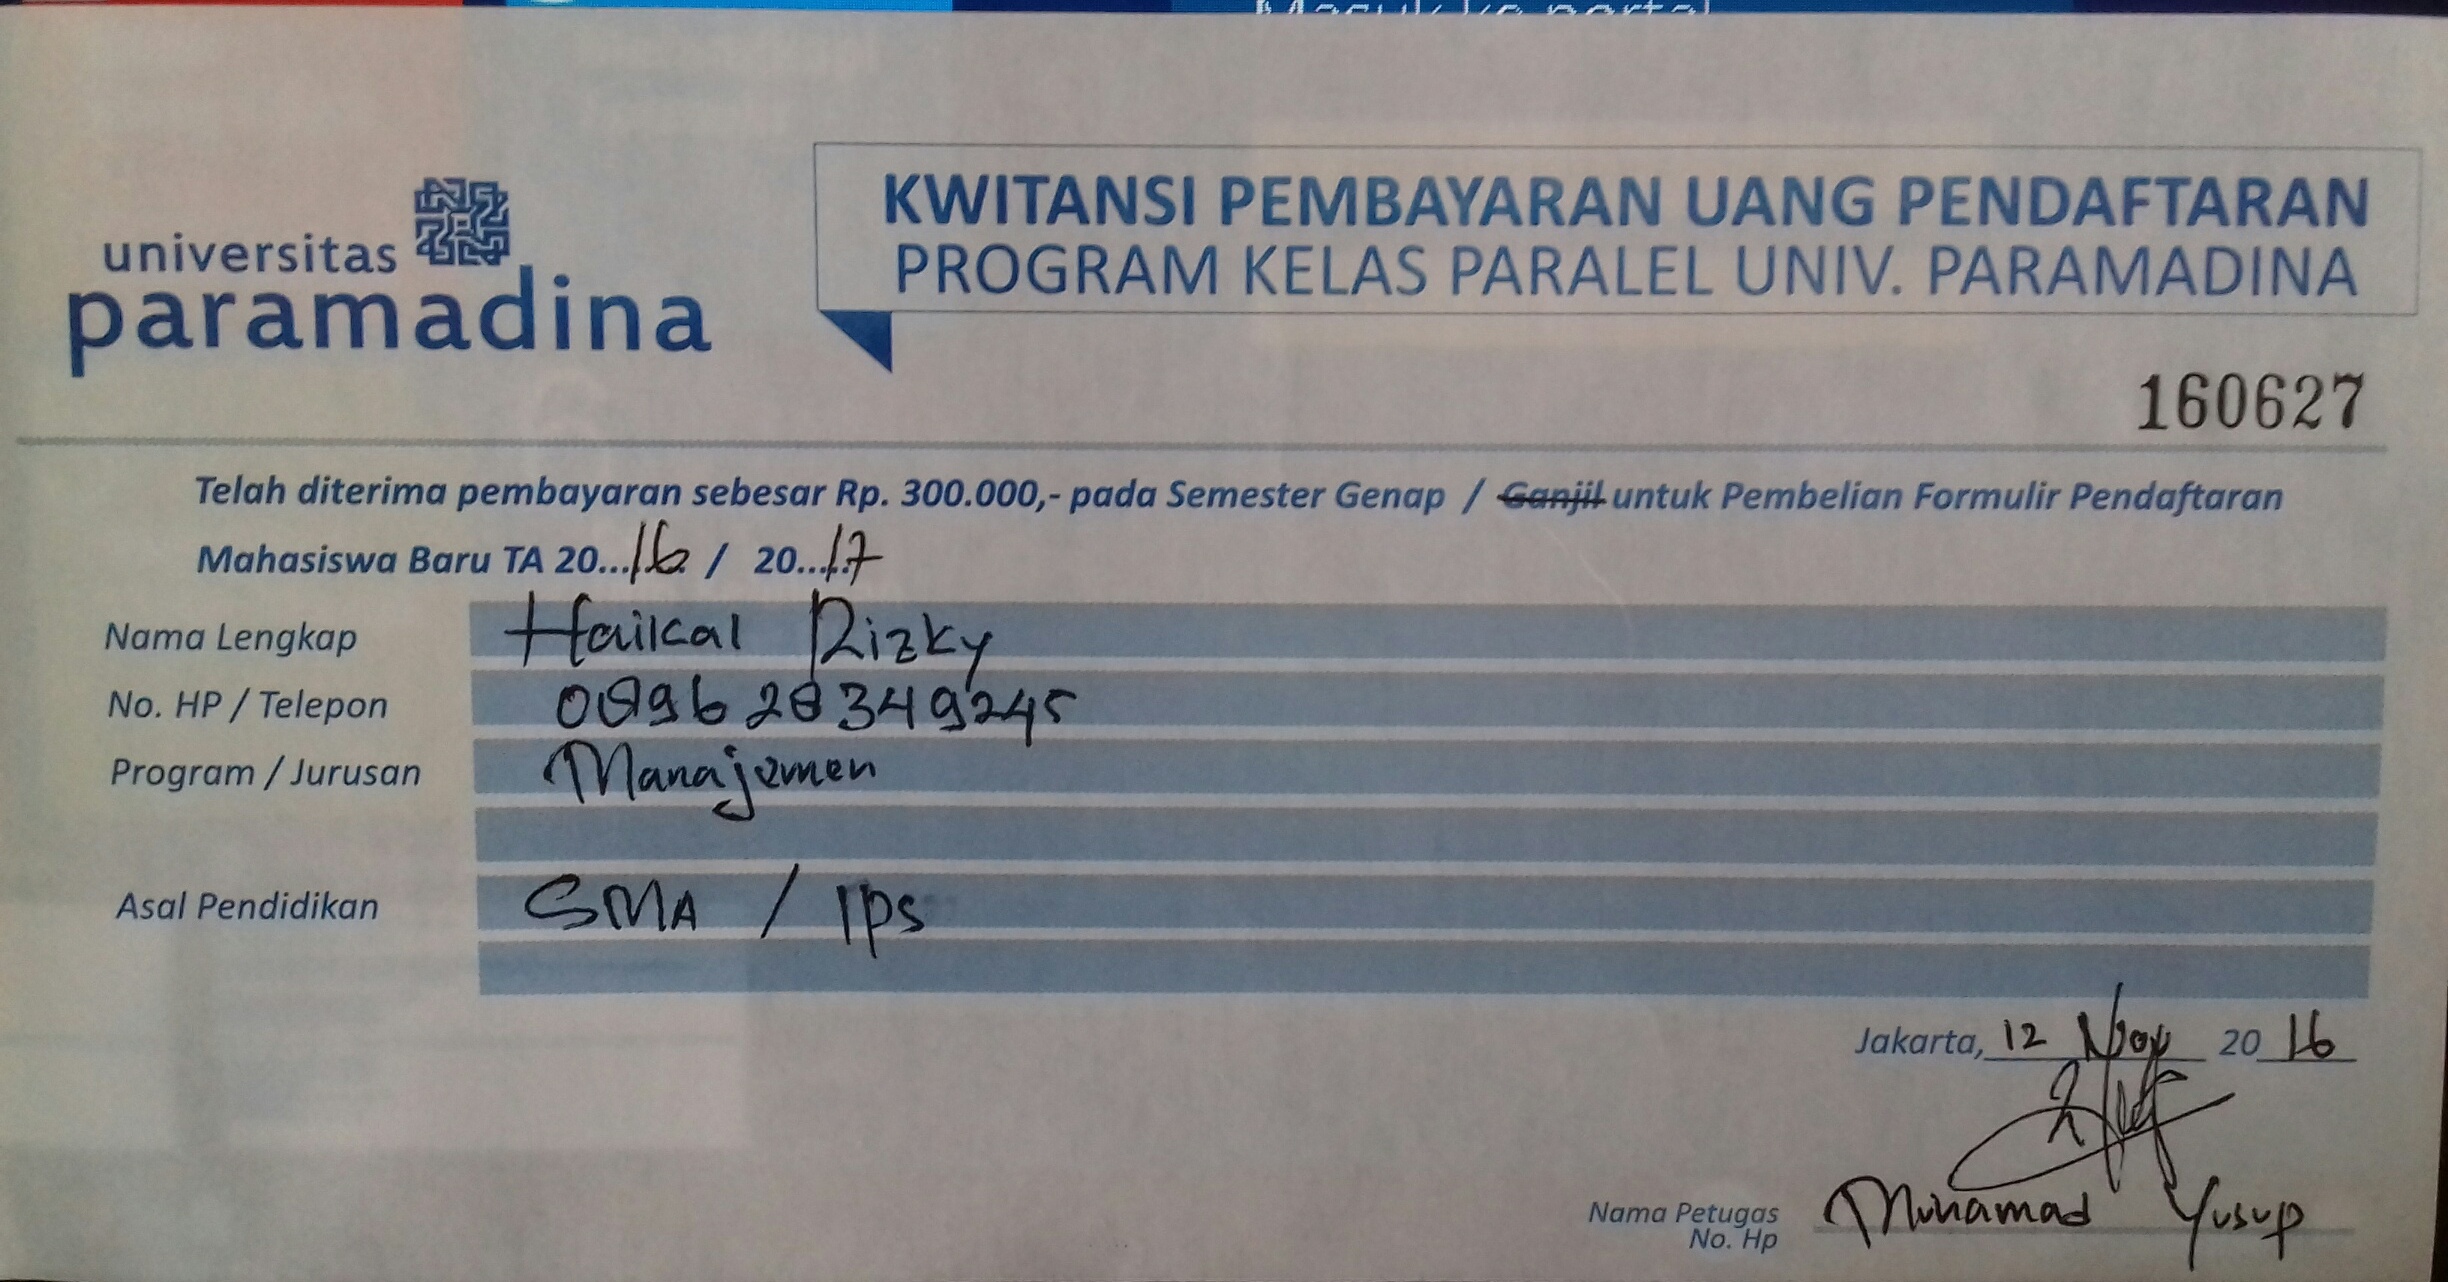 universitas
paramadina
KWITANSI PEMBAYARAN UANG PENDAFTARAN
PROGRAM KELAS PARALEL UNIV. PARAMADINA
160627
Telah diterima pembayaran sebesar Rp. 300.000,- pada Semester Genap / Ganjil untuk Pembelian Formulir Pendaftaran
Mahasiswa Baru TA 20...16 / 20...17
Nama Lengkap Haikal Rizky
No. HP / Telepon 089628349245
Program / Jurusan Manajemen
Asal Pendidikan SMA / IPS
Jakarta, 12 Nov 2016
Nama Petugas Muhamad Yusup
No. Hp